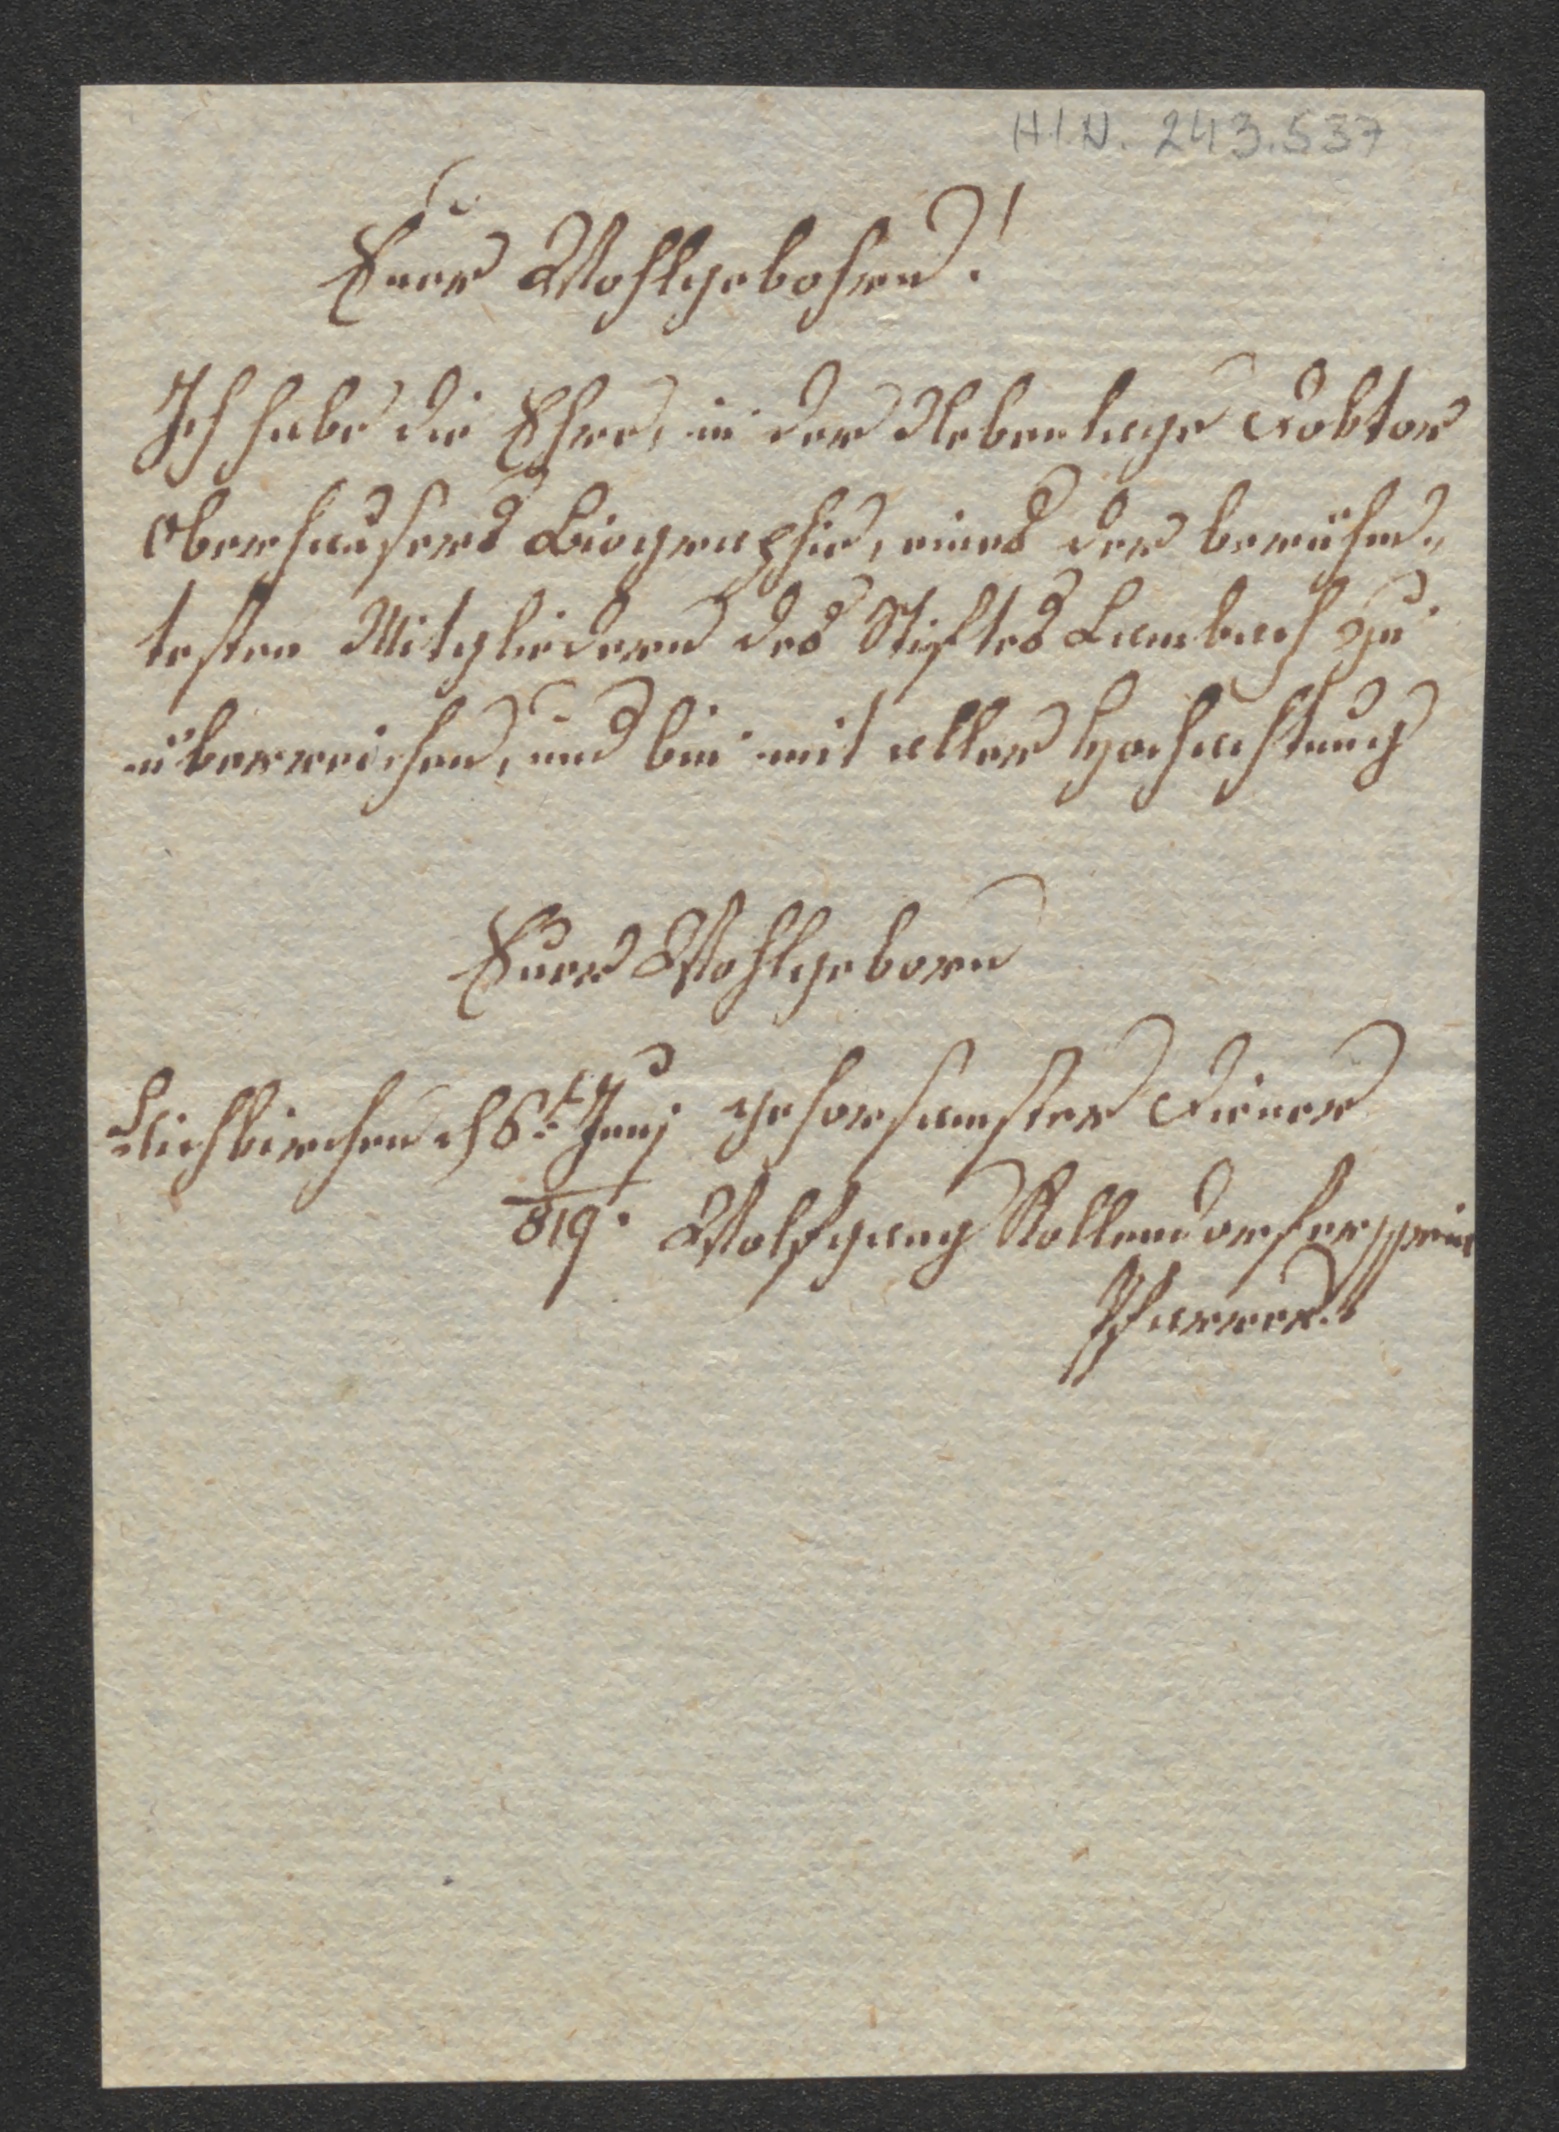 H.I.N. 243.537
Euer Wohlgebohren!
Ich habe die Ehre, in der Nebenlage Doktor
Oberhausers Biographie, eines der berühm„
testen Mitgliedern des Stiftes Lambach zu
überreichen, und bin mit aller Hochachtung
Euer Wohlgeborn
Aichkirchen d 6t Junj gehorsamster Diener
819. Wolfgang Rollendorfer
Pfarrer.